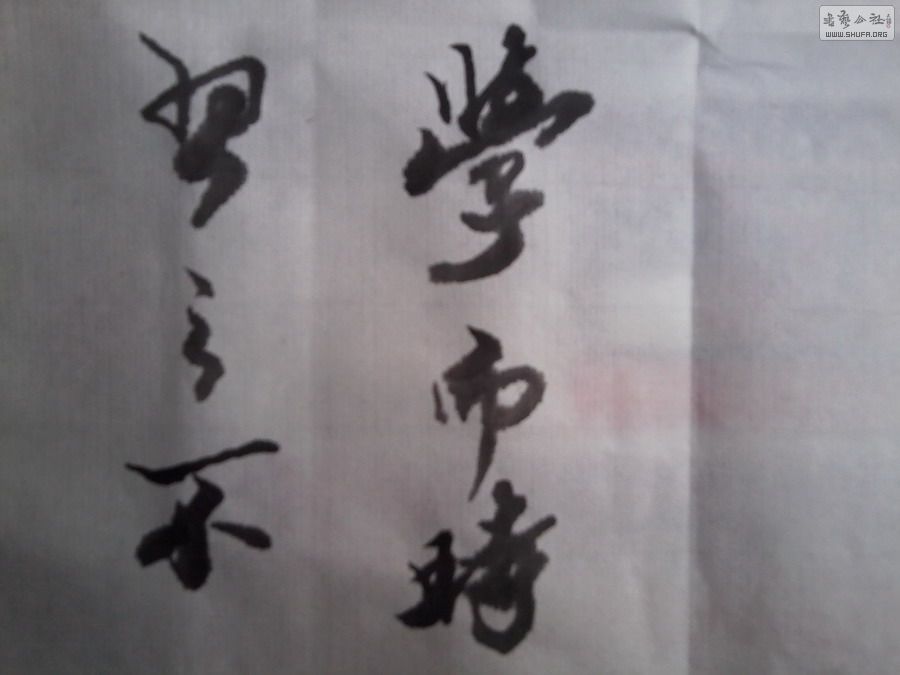 學而時
習之不
書藝公社
WWW.SHUFA.ORG